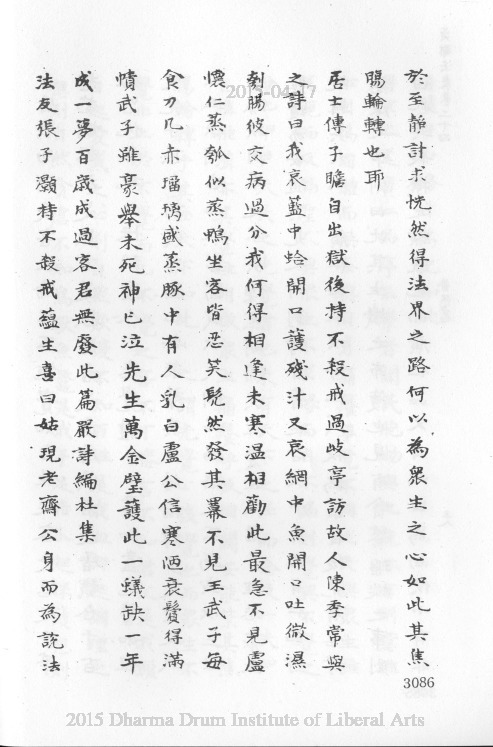 於至靜計求恍然得法界之路何以為眾生之心如此其焦
腸輪轉也耶
居士傅子瞻自出獄後持不殺戒過岐亭訪故人陳季常與
之詩曰我哀藍中蛤開口護殘汁又哀網中魚開口吐微濕
刳腸彼交病過分我何得相逢未寒温相勸此最急不見盧
懷仁蒸瓠似蒸鴨坐客皆忍笑髡然發其羃不見王武子每
食刀几赤瑠璃盛蒸豚中有人乳白盧公信寒陋衰鬢得滿
幘武子雖豪舉未死神已泣先生萬金璧護此一蟻缺一年
成一夢百歲成過客君無廢此篇嚴詩編杜集
法友張子灝持不殺戒蘊生喜曰姑現老齋公身而為說法
3086
2015-04-17
2015 Dharma Drum Institute of Liberal Arts